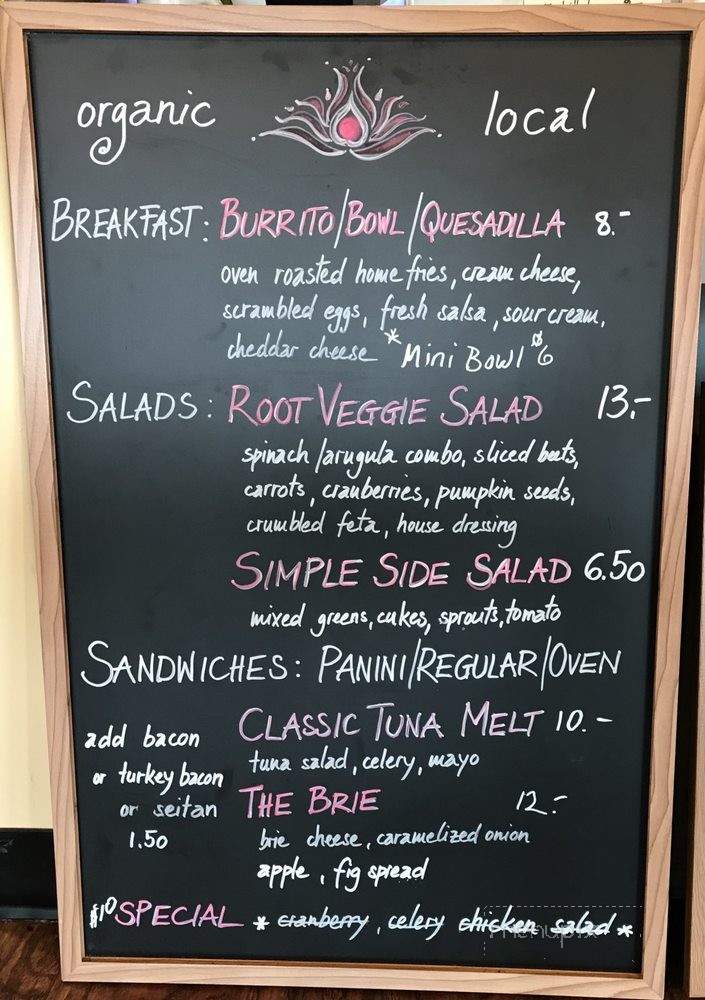 organic local
BREAKFAST: BURRITO/BOWL/QUESADILLA 8.-
oven roasted home fries, cream cheese,
scrambled eggs, fresh salsa, sour cream,
cheddar cheese *Mini Bowl $6
SALADS: ROOT VEGGIE SALAD 13.-
spinach/arugula combo, sliced beets,
carrots, cranberries, pumpkin seeds,
crumbled feta, house dressing
SIMPLE SIDE SALAD 6.50
mixed greens, cukes, sprouts, tomato
SANDWICHES: PANINI/REGULAR/OVEN
CLASSIC TUNA MELT 10.-
tuna salad, celery, mayo
add bacon
or turkey bacon
or seitan
1.50
THE BRIE 12.-
brie cheese, caramelized onion
apple, fig spread
$10 SPECIAL * cranberry, celery chicken salad *